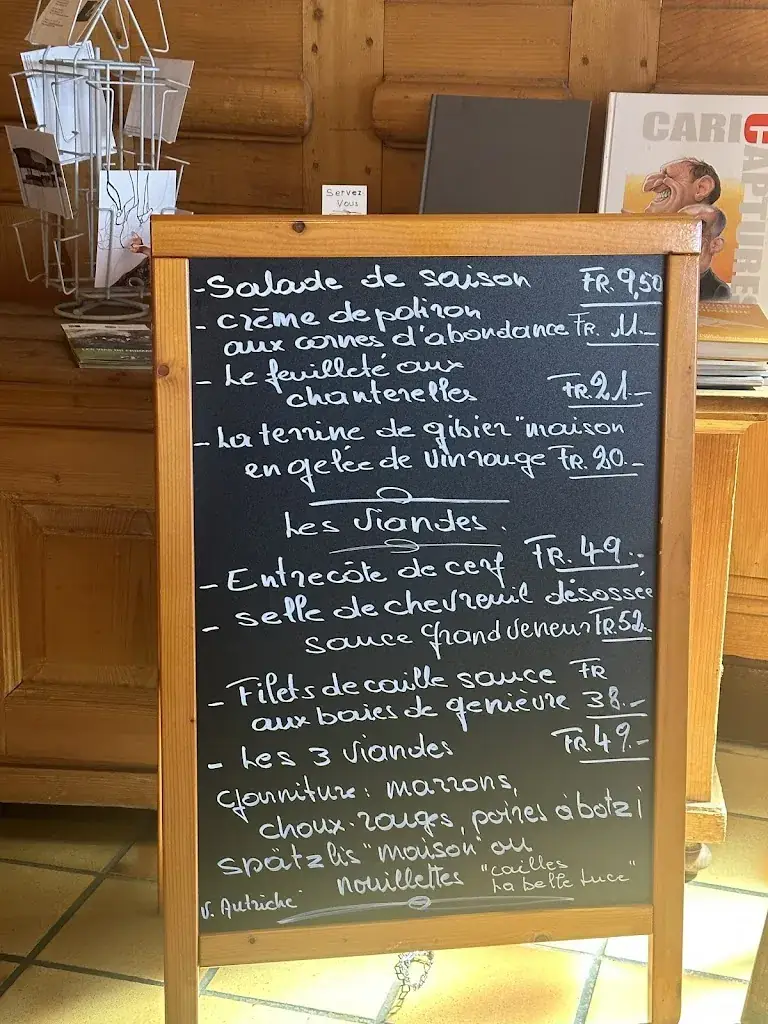 CARICAPTURES
Servez
Vous
- Salade de saison FR. 9,50
- crème de potiron
aux cornes d'abondance FR. 11.-
- Le feuilleté aux
chanterelles FR. 21.-
- La terrine de gibier "maison
en gelée de vin rouge FR. 20.-
Les Viandes.
- Entrecôte de cerf FR. 49.-
- selle de chevreuil désossée
sauce grand veneur FR. 52.-
- Filets de caille sauce FR
aux baies de genièvre 38.-
- Les 3 viandes FR. 49.-
Garniture: marrons,
choux-rouges, poires à botzi
spätzlis "maison" ou
nouillettes "cailles
La belle Luce"
V. Autriche